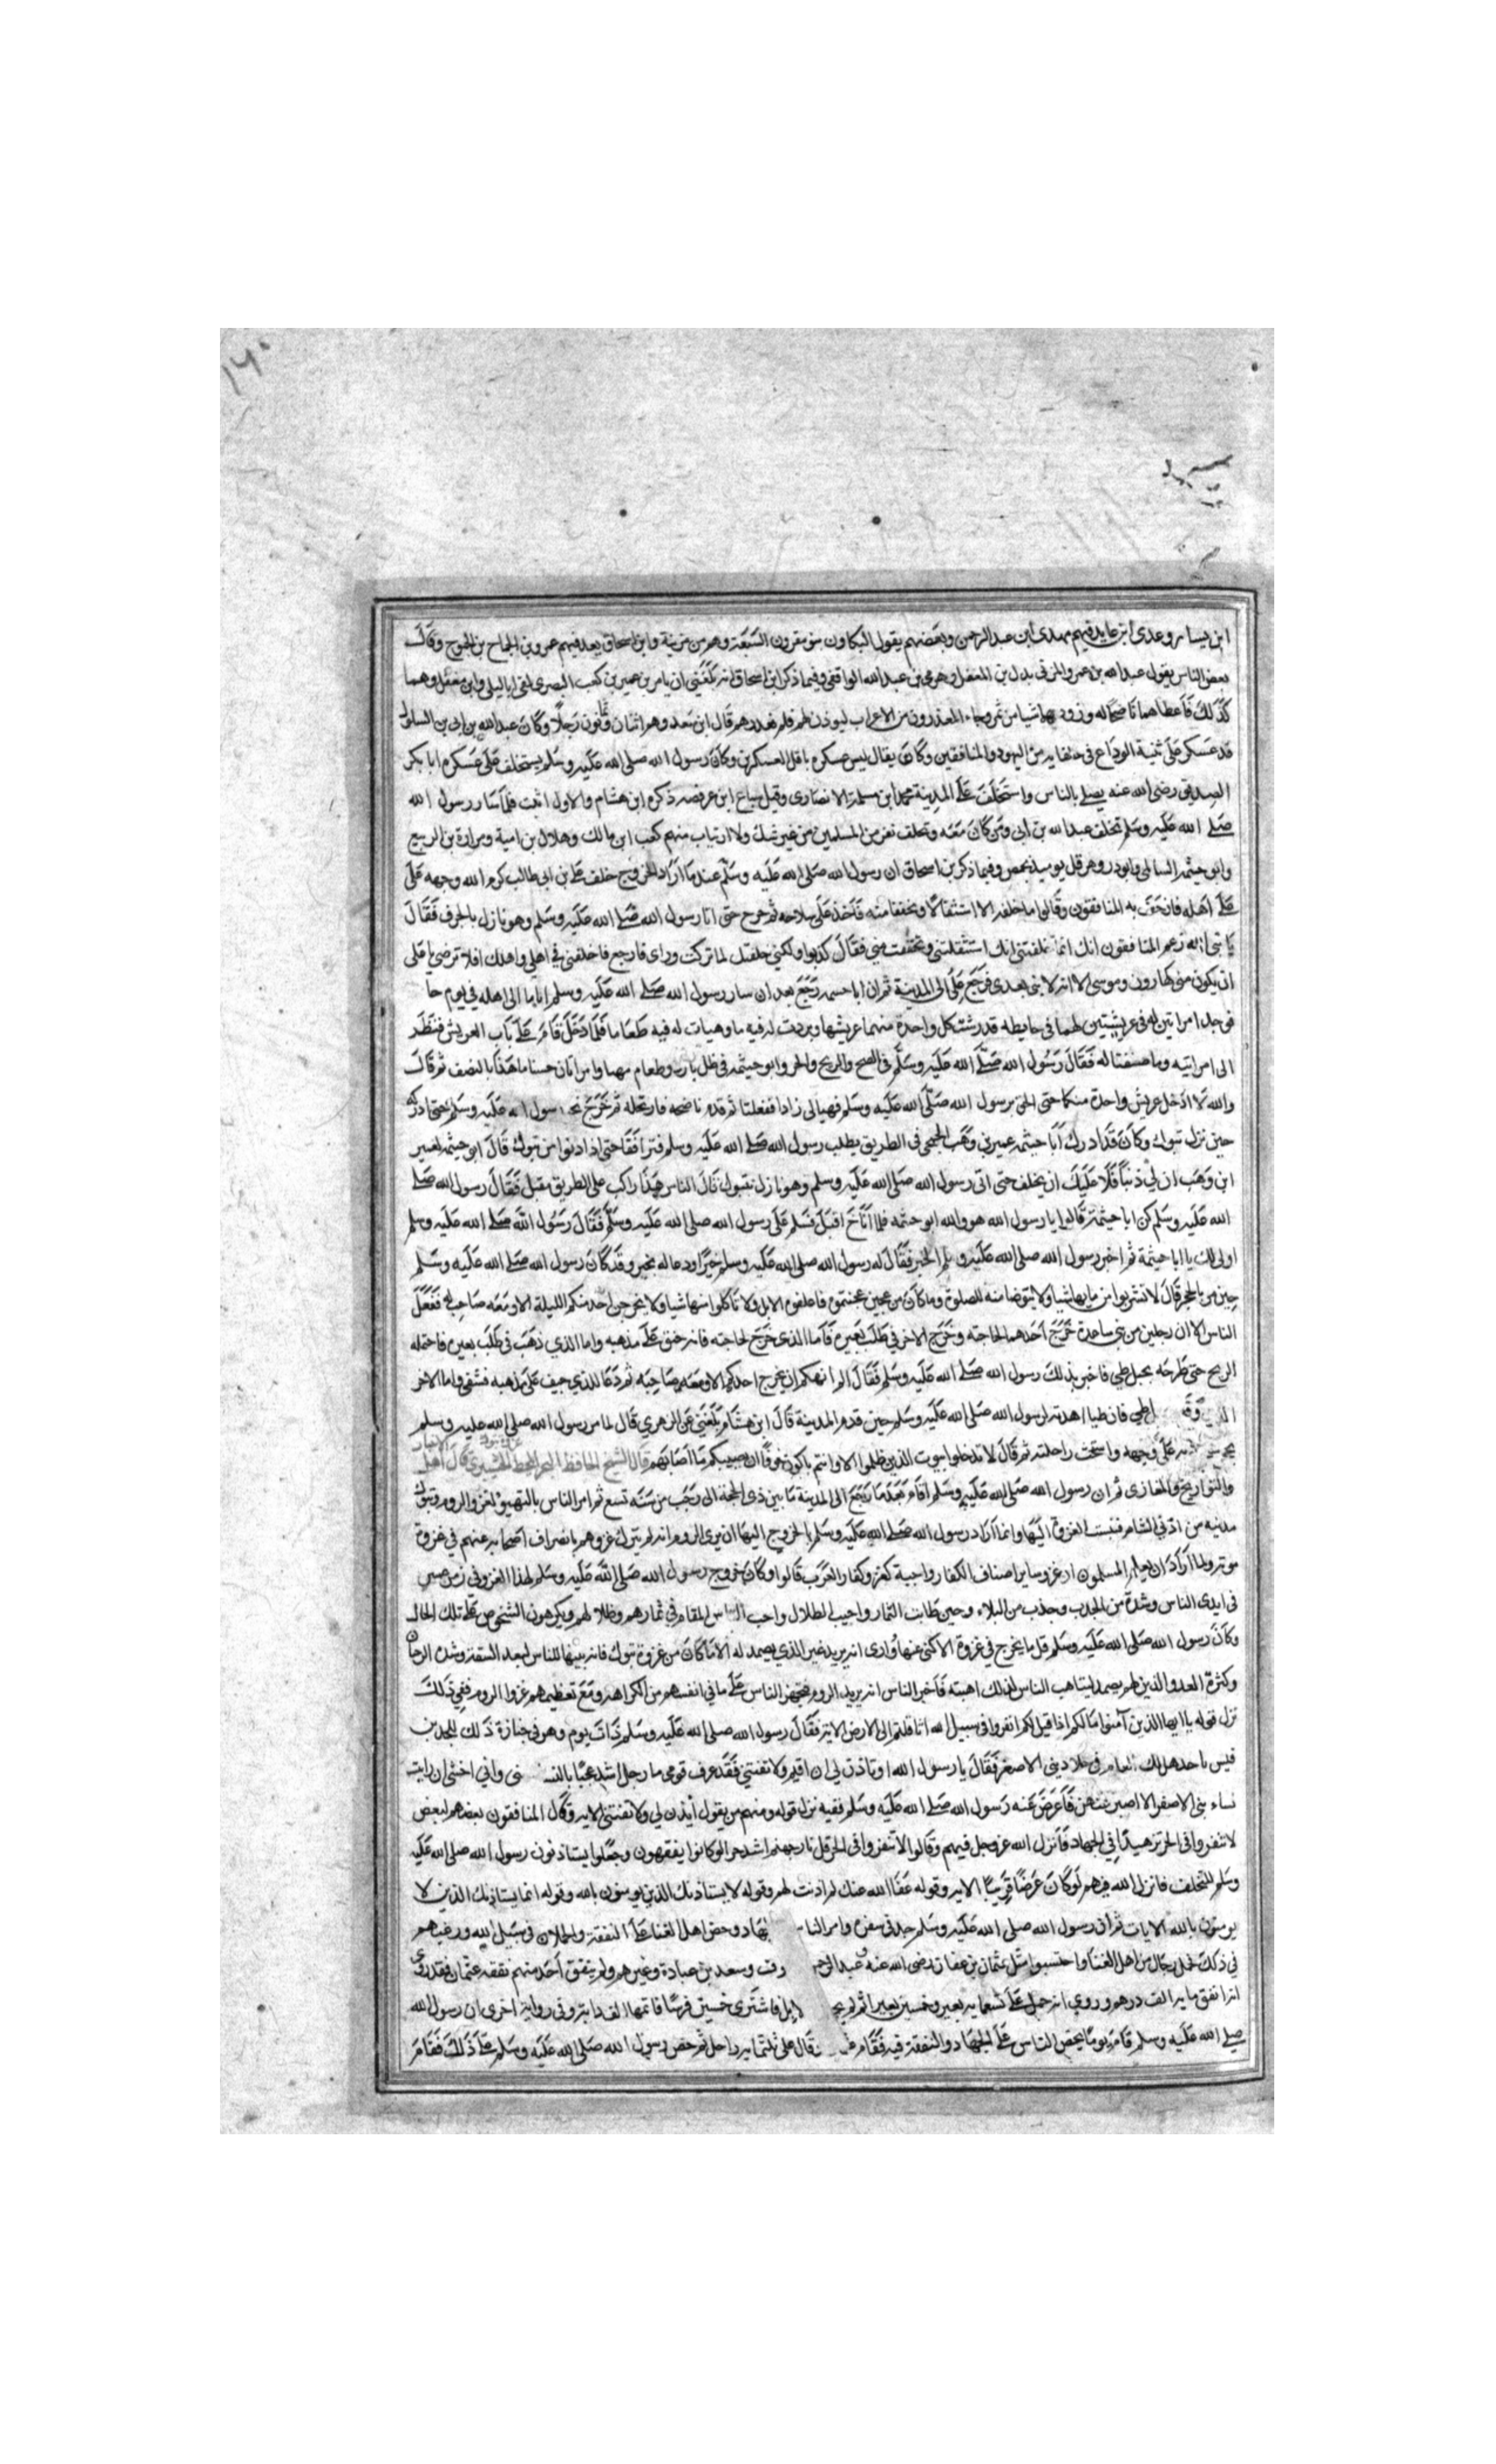 ابن يسار وعدى ابن عابد فيهم مهدى ابن عبد الرحمن وبعضهم يقول البكاون بنو مقرون السبعة وهم من مزينة وابن اسحاق يعد فيهم عمرو بن الجماح بن الجموح وقال
بعض الناس يقول عبد الله بن عمرو المزنى بدل بن المغفل وهرمى بن عبد الله الواقفى وفيما ذكر ابن اسحاق انه بلغنى ان يامر بن عمير بن كعب البصرى لقى ابا ليلى وابن مغفل وهما
كذلك فاعطاهما ناضحا له وزودهما شيا من تمر وجاء المعذرون من الاعراب ليوذن لهم فلم يعذرهم قال ابن سعد وهم اثنان وثمانون رجلا وكان عبد الله بن ابى بن السلول
قد عسكر على ثنية الوداع فى حلفايه من اليهود والمنافقين وكان يقال ليس عسكره باقل العسكرين وكان رسول الله صلى الله عليه وسلم يستخلف على عسكره ابا بكر
الصديق رضى الله عنه يصلى بالناس واستخلف على المدينة محمد ابن مسلمة الانصارى وقيل سباع ابن عرفصه ذكره ابن هشام والاول اثبت فلما سار رسول الله
صلى الله عليه وسلم تخلف عبد الله بن ابى ومن كان معه وتخلف نفر من المسلمين من غير شك ولا ارتياب منهم كعب ابن مالك وهلال بن امية ومرارة بن الربيع
وابو حيثمه السالمى وابو ذر وهرقل يوميذ بحمص وفيما ذكر بن اسحاق ان رسول الله صلى الله عليه وسلم عند ما اراد الخروج خلف على بن ابى طالب كرم الله وجهه على
على اهله فارجف به المنافقون وقالوا ما خلفه الا استثقالا وتخففا منه فاخذ على سلاحه ثم خرج حتى اتا رسول الله صلى الله عليه وسلم وهو نازل بالجرف فقال
يا نبى الله زعم المنافقون انك انما خلفتنى انك استثقلتنى وتخففت منى فقال كذبوا ولكنى خلفتك لما تركت وراى فارجع فاخلفنى فى اهلى واهلك افلا ترضى يا على
ان يكون منى كهارون وموسى الا انه لا نبى بعدى فرجع على الى المدينة ثم ان ابا حسمه رجع بعد ان سار رسول الله صلى الله عليه وسلم اياما الى اهله فى يوم حا
فوجد امراتين له فى عريشيين لهما فى حايطه قد رشت كل واحدة منهما عريشها وبردت له فيه ما وهيات له فيه طعاما فلما دخل قام على باب العريش فنظر
الى امراتيه وما صنعتا له فقال رسول الله صلى الله عليه وسلم فى الضح والريح والحر وابو حيثمه فى ظل بارد وطعام مهيا وامراتان حسنا ما هذا بالنصف ثم قال
والله لا ادخل عريش واحدة منكما حتى الحق برسول الله صلى الله عليه وسلم فهيا لى زادا ففعلتا ثم قدم ناضحه فارتحله ثم خرج رسول الله عليه وسلم حتى ادركه
حين نزل تبوك وكان قد ادرك ابا حيثمه عمير بن وهب الجمحى فى الطريق يطلب رسول الله صلى الله عليه وسلم فترافقا حتى اذا دنوا من تبوك قال ابو حيثمه لعمير
ابن وهب ان لى ذنبا فلا عليك ان يخلف حتى اتى رسول الله صلى الله عليه وسلم وهو نازل بتبوك قال الناس هذا راكب على الطريق مقبل فقال رسول الله صلى
الله عليه وسلم كن ابا حيثمة قالوا يا رسول الله هو والله ابو حثمه فلما اناخ اقبل فسلم على رسول الله صلى الله عليه وسلم فقال رسول الله صلى الله عليه وسلم
اولى لك يا ابا حيثمة ثم اخبر رسول الله صلى الله عليه وسلم الخبر فقال له رسول الله صلى الله عليه وسلم خيرا ودعا له بخير وقد كان رسول الله صلى الله عليه وسلم
حين مر بالحجر قال لا تشربوا من مايها شيا ولا يتوضا منه للصلوة وما كان من عجين عجنتموه فاعلفوه الابل ولا تاكلوا منها شيا ولا يخرجن احد منكم الليلة الا ومعه صاحب له ففعل
الناس الا ان رجلين من بنى ساعدة خرج احدهما لحاجته وخرج الاخر فى طلب بعيره فاما الذى خرج لحاجته فانه خنق على مذهبه واما الذى ذهب فى طلب بعيره فاحتمله
الريح حتى طرحه بجبل طى فاخبر بذلك رسول الله صلى الله عليه وسلم فقال الم انهكم ان يخرج احدكم الا ومعه صاحبه ثم دعا للذى جيف على مذهبه فشفى واما الاخر
الذى وقع بجبل طى فان طيا اهدته لرسول الله صلى الله عليه وسلم حين قدم المدينة قال ابن هشام بلغنى عن الزهرى قال لما مر رسول الله صلى الله عليه وسلم
على وجهه واستحث راحلته ثم قال لا تدخلوا بيوت الذين ظلموا الا وانتم باكون خوفا ان يصيبكم ما اصابهم قال الشيخ الحافظ قال اهل
والتواريخ والمغازى ثم ان رسول الله صلى الله عليه وسلم اقام بعد ما رجع الى المدينة ما بين ذى الحجة الى رجب من سنة تسع ثم امر الناس بالتهيو لغزو الروم وتبوك
مدينه من ادنى الشام فنسبت الغزوة اليها وانما اراد رسول الله صلى الله عليه وسلم بالخروج اليها ان يرى الروم انه لم يترك غزوهم بانصراف اصحابه عنهم فى غزوة
موته ولما اراد ان يعلم المسلمون ان غزو ساير اصناف الكفار واجبة كغزو كفار العرب قالوا وكان خروج رسول الله صلى الله عليه وسلم لهذا الغزو فى زمن عسر
فى ايدى الناس وشدة من الجدب وجذب من البلاء وحين طابت الثمار واحب الظلال واحب الناس المقام فى ثمارهم وظلالهم ويكرهون الشخوص على تلك الحال
وكان رسول الله صلى الله عليه وسلم قل ما يخرج فى غزوة الا كنى عنها وارى انه يريد غير الذى يصمد له الا ما كان من غزوة تبوك فانه بينها للناس لبعد الشقة وشدة الزمان
وكثرة العدو الذين لهم يصمد ليتاهب الناس لذلك اهبته فاخبر الناس انه يريد الروم فتجهز الناس على ما فى انفسهم من الكراهه ومع تعظيمهم غزوا الروم ففى ذلك
نزل قوله يا ايها الذين آمنوا ما لكم اذا قيل لكم انفروا فى سبيل الله اثاقلتم الى الارض الايه فقال رسول الله صلى الله عليه وسلم ذات يوم وهو فى جنازة ذلك للجد بن
قيس يا جد هل لك العام فى جلاد بنى الاصفر فقال يا رسول الله او تاذن لى ان اقيم ولا تفتنى فقد عرف قومى ما رجل اشد عجبا بالنسا منى وانى اخشى ان رايت
نساء بنى الاصفر الا اصبر عنهن فاعرض عنه رسول الله صلى الله عليه وسلم ففيه نزل قوله ومنهم من يقول ايذن لى ولا تفتنى الايه وقال المنافقون بعضهم لبعض
لا تنفروا فى الحر تزهيدا فى الجهاد فانزل الله عز وجل فيهم وقالوا لا تنفروا فى الحر قل نار جهنم اشد حرا لو كانوا يفقهون وجعلوا يستاذنون رسول الله صلى الله عليه
وسلم للتخلف فانزل الله فيهم لو كان عرضا قريبا الايه وقوله عفا الله عنك لم اذنت لهم وقوله لا يستاذنك الذين يومنون بالله وقوله انما يستاذنك الذين لا
يومنون بالله الايات ثم ان رسول الله صلى الله عليه وسلم جد فى سفره وامر الناس بالجهاد وحض اهل الغنا على النفقة والحملان فى سبيل الله ورغبهم
فى ذلك فحمل رجال من اهل الغنا واحتسبوا مثل عثمان بن عفان رضى الله عنه وعبد الرحمن وسعد بن عبادة وغيرهم ولم ينفق احد منهم نفقه عثمان فقد روى
انه انفق مايه الف درهم وروى انه حمل على تسعمايه بعير وخمسين بعيرا ثم لم يجد الابل فاشترى خمسين فرسا فاتمها الف دابة وفى رواية اخرى ان رسول الله
صلى الله عليه وسلم قام يوما يحض الناس على الجهاد والنفقة فيه فقام قال على ثلثمايه راحل ثم حض رسول الله صلى الله عليه وسلم على ذلك فقام